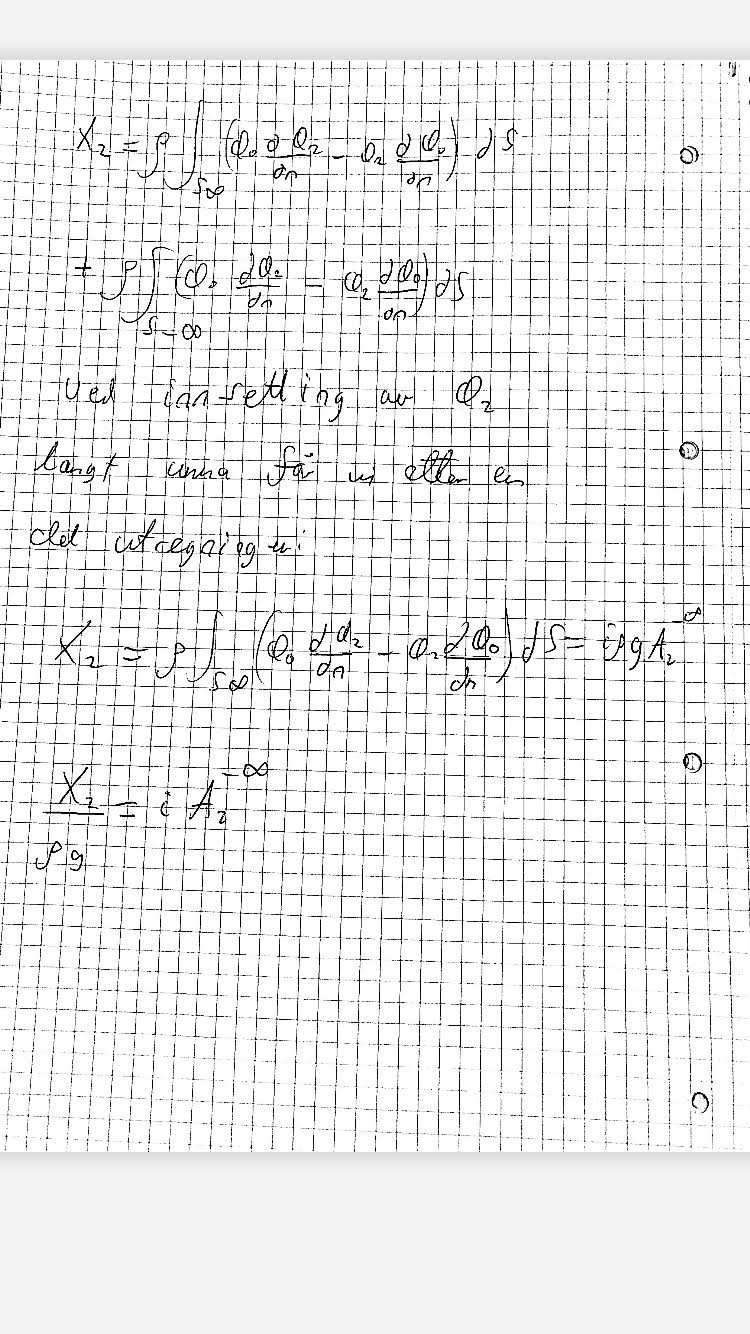 X₂ = ρ ∫_{S∞} (φ₀ ∂φ₂/∂n − φ₂ ∂φ₀/∂n) dS
+ ρ ∫_{S−∞} (φ₀ ∂φ₂/∂n − φ₂ ∂φ₀/∂n) dS
Ved innsetting av φ₂
langt unna får vi etter en
del utregninger:
X₂ = ρ ∫_{S∞} (φ₀ ∂φ₂/∂n − φ₂ ∂φ₀/∂n) dS = iρgA₂^{−∞}
X₂/ρg = i A₂^{−∞}